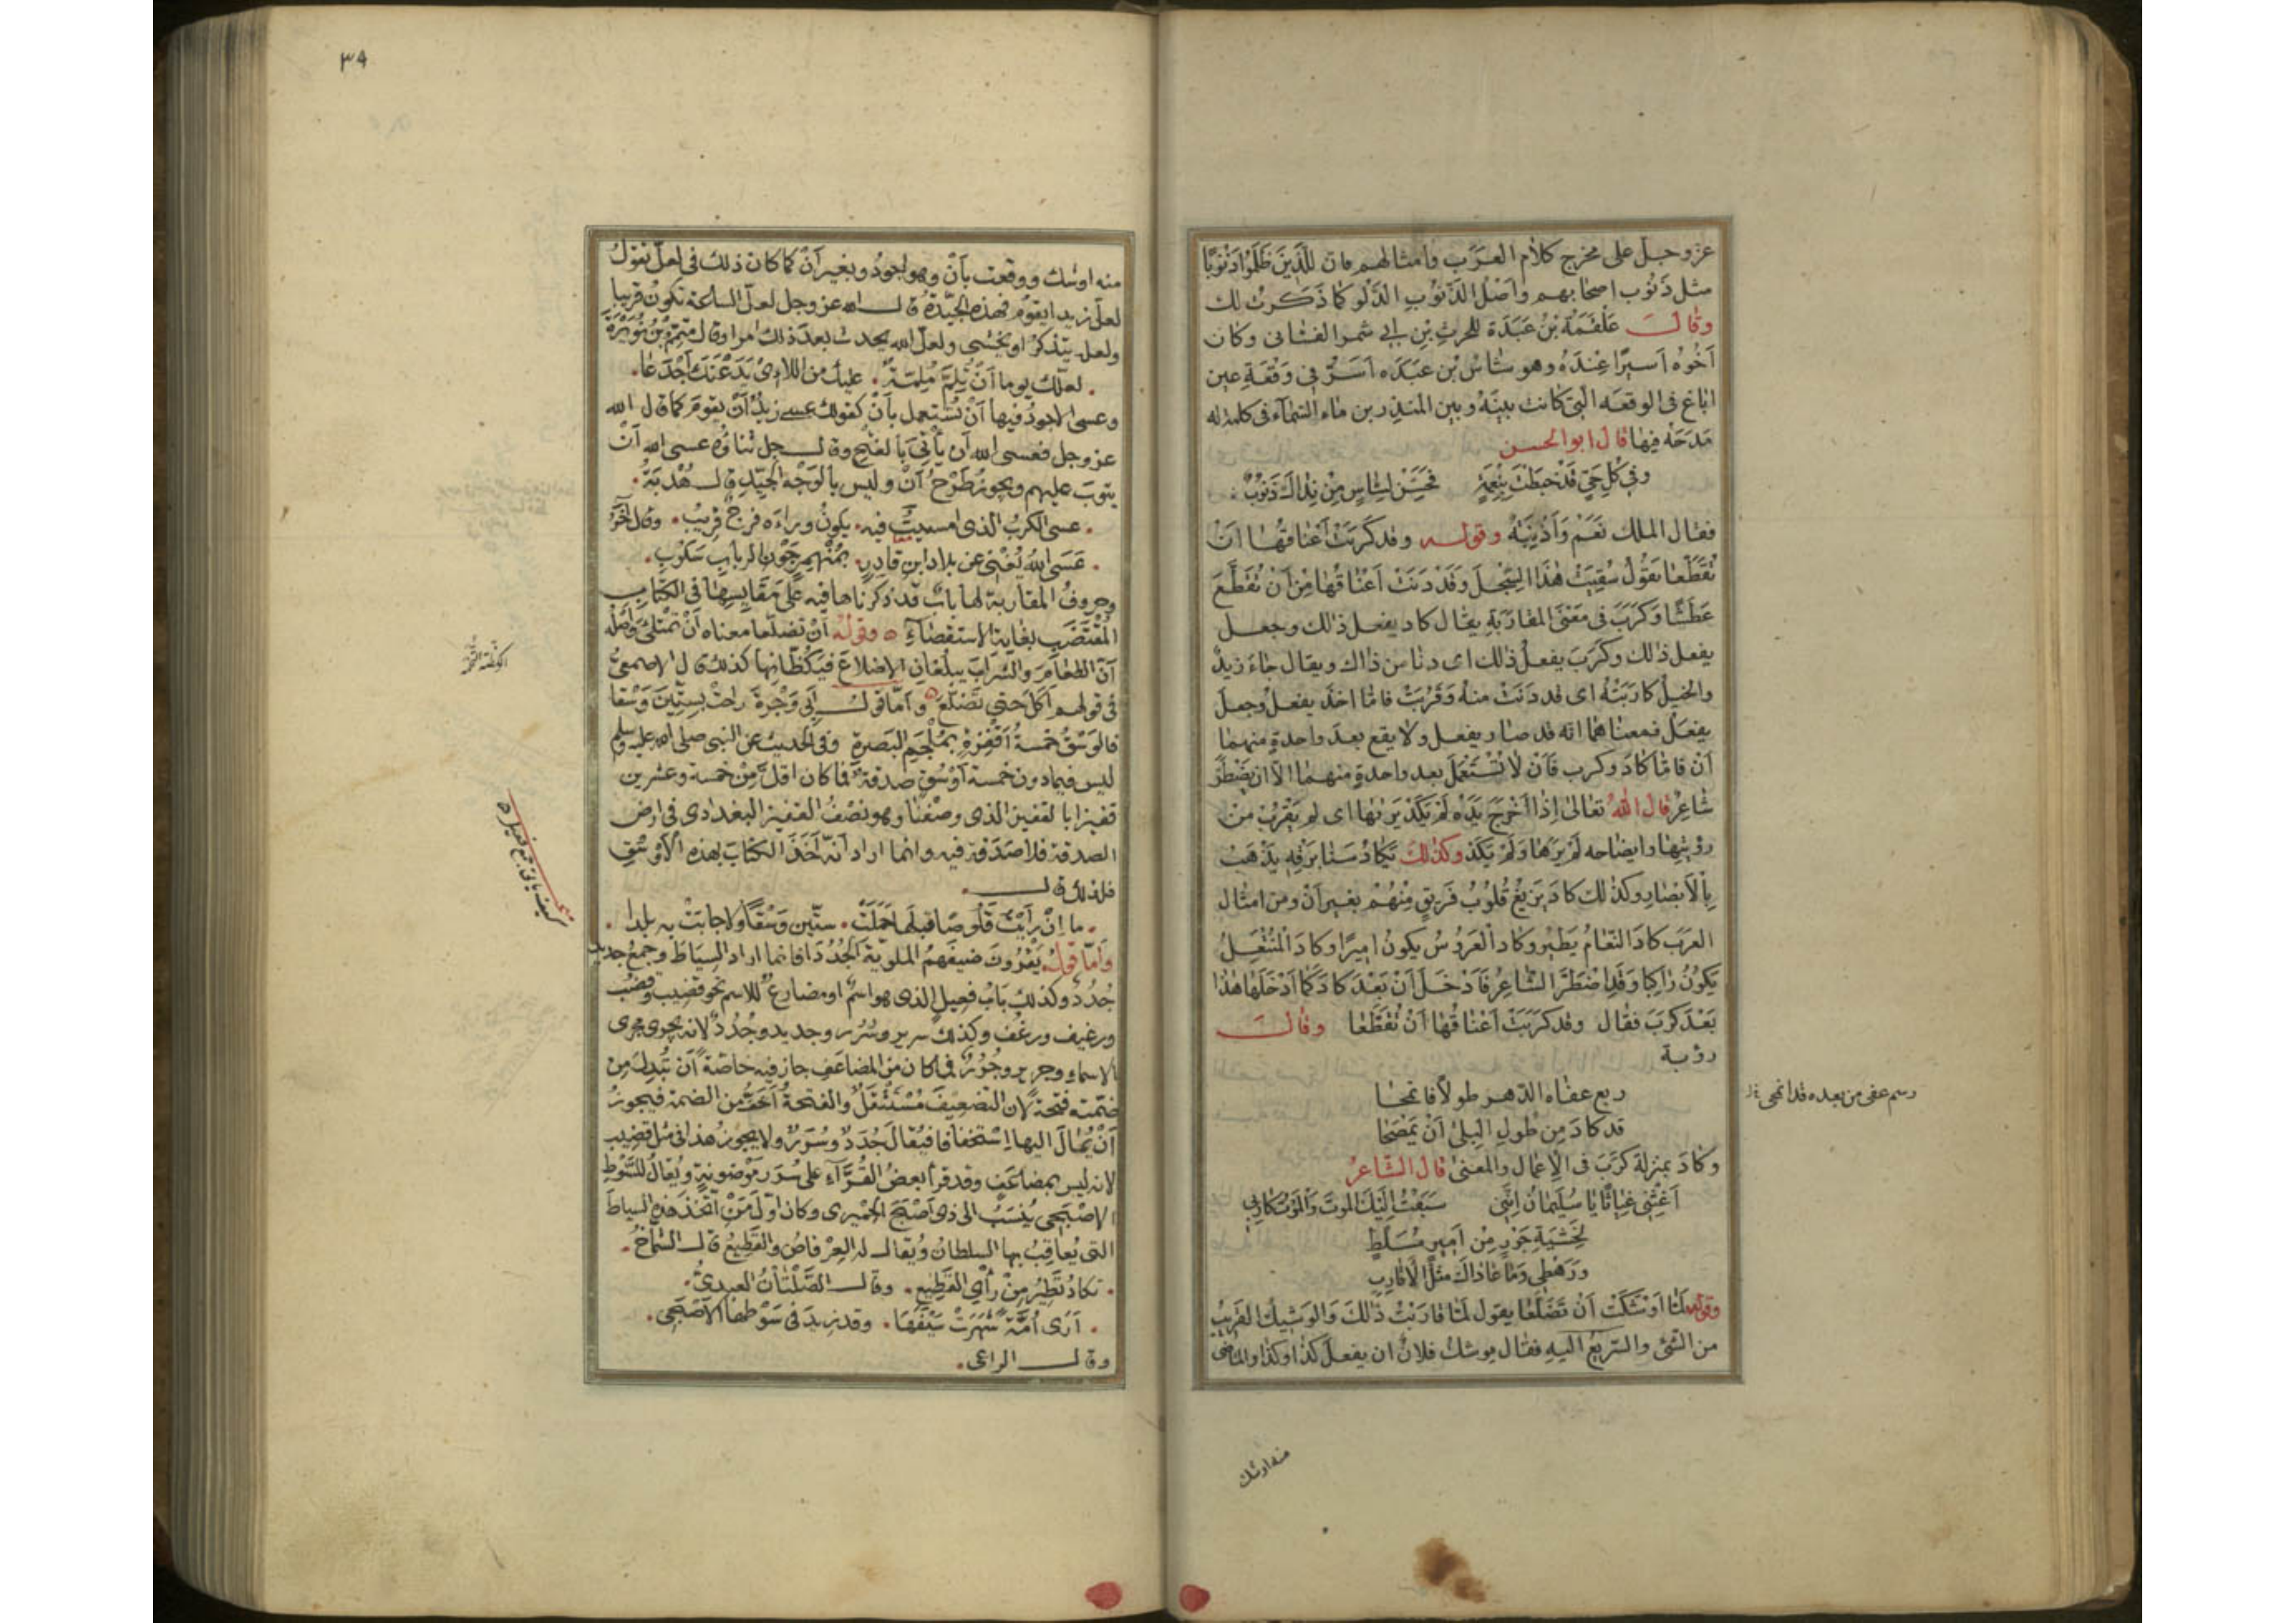 عز وجل على مخرج كلام العَرَب وامثالهم فان للَّذِينَ ظَلَمُوا ذَنُوبًا
مثل ذَنُوب اصحابهم وَاَصْلُ الذَّنُوبِ الدَّلْو كما ذَكَرتُ لك
وقال عَلْقَمَةُ بْنُ عَبَدَة للحرث بْنِ ابي شمر الغسانى وكان
اَخُوه اَسيرًا عِنْدَهُ وهو شاسُ بْن عَبَدَه اَسَرَهُ فى وَقْعَةِ عين
اباغ فى الوقعه الّتى كانت بينَهُ وبين المنذر بن ماء السّماء فى كلمة له
مَدَحَهُ فيها قال ابو الحسن
وَفِى كُلِّ حَىٍّ قَدْ خَبَطْتَ بِنِعْمَةٍ فَحُقَّ لِشاسٍ مِنْ نَداكَ ذَنُوبُ
فقال الملك نَعَمْ وَاَذْنِبَةٌ وقوله وقد كَرَبَتْ اَعْناقُها اَنْ
تُقَطَّعا يقُولُ سُقِيَتْ هٰذا السَّجْلَ وَقَدْ دَنَتْ اَعْناقُها مِنْ اَنْ تُقَطَّعَ
عَطَشًا وَكَرَبَ فى مَعْنَى المقارَبَةِ يقال كاد يفعل ذلك وجعل
يفعل ذلك وكَرَبَ يفعلُ ذلك اى دنا من ذاك ويقال جاءَ زيدٌ
والخيلُ كارَبَتْهُ اى قد دَنَتْ منهُ وَقَرُبَتْ فامّا اخذ يفعلُ وجعل
يفعل فمعناهما انّه قد صار يفعل ولا يقع بعدَ واحدةٍ منهما
اَنْ فامّا كادَ وكرب فَاَنْ لا تُسْتَعْمَلَ بعد واحدةٍ منهما الّا ان يضْطَرَّ
شاعِرٌ قال اللّٰهُ تعالىٰ اِذا اَخْرَجَ يَدَه لَمْ يَكَدْ يَرٰيها اى لم يَقْرُبْ من
رؤيتِها وايضاحه لَمْ يَرَها وَلَمْ يَكَدْ وكذلك يَكادُ سَنا بَرْقِهِ يَذْهَبُ
بِالْاَبْصارِ وكذلك كادَ يَزيغُ قُلُوبُ فَريقٍ مِنْهُمْ بغير اَنْ ومن امثال
العرَب كادَ النّعامُ يَطيرُ وكاد العَرُوسُ يكون اميرًا وكادَ المُنْتَعِلُ
يَكونُ راكبًا وَقَدِ اضْطَرَّ الشاعِرُ فَاَدْخَلَ اَنْ بَعْدَ كادَ كَما اَدْخَلَها هٰذا
بَعْدَ كَرَبَ فقال وقد كَرَبَتْ اَعْناقُها اَنْ تُقَطَّعا وقال
رؤبة
ربع عفاه الدّهر طولًا فامّحا
قد كادَ مِن طولِ البِلىٰ اَنْ يَمْصَحا
رسم عفى من بعده قد انمحى
وكادَ بمنزلة كَرَبَ فى الاِعمال والمعنىٰ قال الشّاعرُ
اَغِثْنى غِياثًا يا سُلَيمانُ اِنَّنى سَبَقْتُ اِلَيْكَ الموتَ وَالْمَوْتُ كارِبى
لِخَشْيَةِ جَوْرٍ مِنْ اَميرٍ مُسَلَّطٍ
ورَهْطى وَما عاداكَ مثلُ الاَقارِبِ
وقوله لَمّا اَوْشَكَتْ اَنْ تَضَلَّعا يقول لَمّا قارَبَتْ ذٰلكَ وَالوَشيكُ القَريبُ
من الشّئ والسّريعُ اليهِ فقال يوشك فلان ان يفعل كذا وكذا والماضى
منه اوشك
٣٩
منه اوشك ووقعت باَنْ وهو اجودُ وبغير اَنْ كما كان ذلك فى لعلّ تقول
لعلّ زيدا يقوم فهذه الجيّدة قال الله عز وجل لعلّ الساعة تكون قريبا
ولعله يتذكر او يخشى ولعلّ الله يحدث بعد ذلك امرا وقال متمّم بن نُوَيْرَة
لعلّك يوما اَنْ تُلِمَّ مُلِمّةٌ عليك من اللاءِ يَدَعْنَكَ اَجْدَعا
وعسى الاجودُ فيها اَنْ تُسْتعمل باَنْ كقولك عسى زيدٌ اَنْ يقومَ كما قال الله
عز وجل فعسى الله ان يأتِىَ بالفتح وقال جل ثناؤه عسى الله اَنْ
يتوبَ عليهم ويجوز طَرْحُ اَنْ وليس بالوَجْه الجيّد قال هُدْبَةُ
عسى الكربُ الذى امسيتَ فيه يكونُ وراءه فرجٌ قريبُ وقال آخَرُ
عَسَى اللهُ يُغْنِى عن بلاد ابنِ قادِرٍ بمُنْهمِرٍ جَوْنِ الربابِ سَكُوبِ
وحروفُ المقاربة لها بابٌ قد ذكرناها فيه على مَقَايِسِها فى الكتاب
المُقْتَضَب بغاية الاستقصاءِ وقولُه اَنْ تضلّعا معناه اَنْ تمتلئَ واَصْلُه
اَنّ الطعامَ والشرابَ يبلُغانِ الاضلاعَ فيَكُظّانِها كذلك قال الاصمعىُّ
فى قولهم اَكَلَ حتى تَضَلّعَ واَمّا قول اَبِى وَجْزةَ راحَتْ بِسِتّينَ وَسْقا
فالوَسْقُ خمسةُ اَقْفِزةٍ بمُلْجَمِ البَصرةِ وفى الحديث عن النبى صلى الله عليه وسلم
ليس فيما دون خمسة اَوْسُقٍ صدقةٌ فما كان اقلَّ مِنْ خمسة وعشرين
قفيزا بالقفيز الذى وصفنا وهو نصْفُ القفيز البغدادى فى ارض
الصدقة فلا صَدَقةَ فيه وانما اراد اَنّه اَخَذَ الكتابَ بهذه الاَوْسُقِ
فلذلك قال
ما اِنْ رَأَيْتُ قَلُوصًا قبلَها حَمَلَتْ ستّين وَسْقًا ولا جابَتْ به بلدا
واَمّا قولُه يَقْرُونَ ضيفَهمُ الملويّةَ الجُدُدَا فانما اراد السِياطَ وجمعُ جديدٍ
جُدُدٌ وكذلك بَابُ فعيلٍ الذى هو اسمٌ او مضارعٌ للاسم نحو قضيبٍ وقُضُبٍ
ورغيف ورغُف وكذلك سرير وسُرُر وجديد وجُدُدٌ لانه يجرى مجرى
الاسماءِ وجرير وجُرُرٌ فما كان من المضاعَفِ جاز فيه خاصّةً اَن تُبدِلَ مِن
ضمّته فتحةً لان التضعيفَ مُسْتَثْقَلٌ والفتحةُ اَخَفُّ من الضمة فيجوزُ
اَنْ يُمالَ اليها اِسْتخفافا فيُقالَ جُدَدٌ وسُرَرٌ ولا يجوزُ هذا فى مثل قضيب
لانه ليس بمضاعَفٍ وقد قرأ بعضُ القُرّآءِ على سُرَرٍ مَوْضونةٍ ويُقالُ للسَّوْطِ
الاَصْبَحِى يُنْسَبُ الى ذى اَصْبَحَ الحِمْيرى وكان اوّلَ مَنْ اتّخذَ هذه السياطَ
التى يُعاقِبُ بها السلطانُ ويُقال له العِرْفاصُ والقَطِيعُ قال الشمّاخُ
تكادُ تَطِيرُ مِنْ رَأْىِ القَطِيعِ وقال الصَّلَتانُ العبدىُّ
اَرَى اُمّةً شَهَرَتْ سَيْفَها وقد زِيدَ فى سَوْطِها الاَصْبَحِى
وقال الراعى
الكظة التخمة